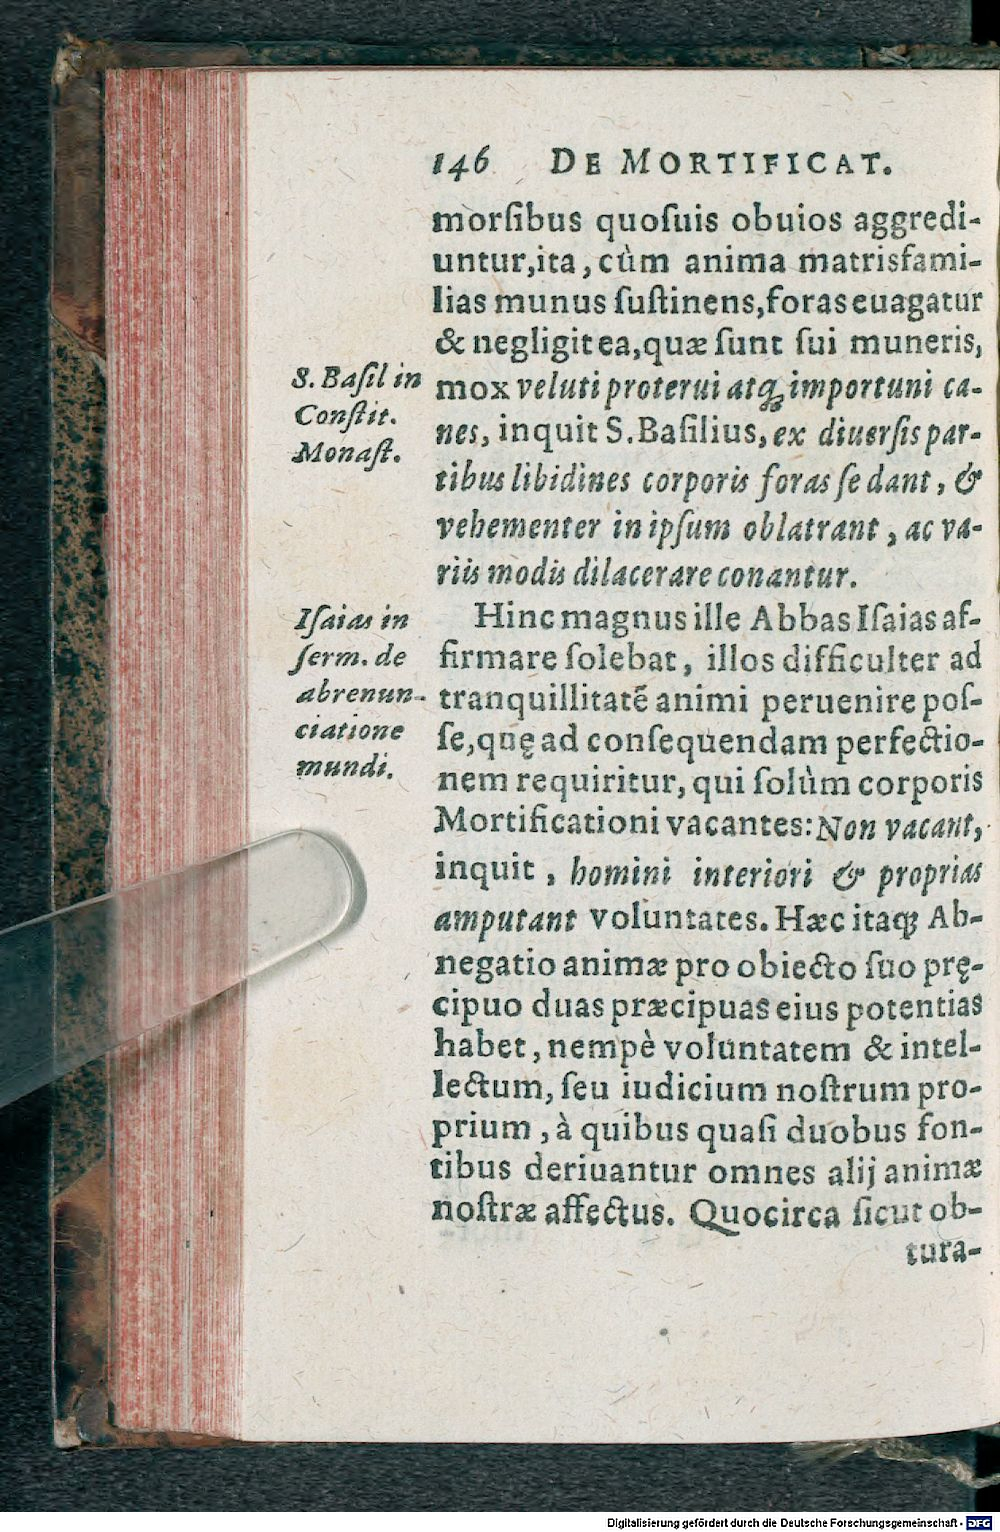 146 DE MORTIFICAT.
morſibus quoſuis obuios aggredi-
untur,ita, cùm anima matrisfami-
lias munus ſuſtinens, foras euagatur
& negligit ea, quæ ſunt ſui muneris,
S. Baſil in
Conſtit.
Monaſt.
mox veluti proterui atq; importuni ca-
nes, inquit S. Baſilius, ex diuerſis par-
tibus libidines corporis foras ſe dant, &
vehementer in ipſum oblatrant, ac va-
riis modis dilacerare conantur.
Iſaias in
ſerm. de
abrenun-
ciatione
mundi.
Hinc magnus ille Abbas Iſaias af-
firmare ſolebat, illos difficulter ad
tranquillitatẽ animi peruenire poſ-
ſe, quę ad conſequendam perfectio-
nem requiritur, qui ſolùm corporis
Mortificationi vacantes: Non vacant,
inquit, homini interiori & proprias
amputant voluntates. Hæc itaq; Ab-
negatio animæ pro obiecto ſuo prę-
cipuo duas præcipuas eius potentias
habet, nempè voluntatem & intel-
lectum, ſeu iudicium noſtrum pro-
prium, à quibus quaſi duobus fon-
tibus deriuantur omnes alij animæ
noſtræ affectus. Quocirca ſicut ob-
tura-
Digitalisierung gefördert durch die Deutsche Forschungsgemeinschaft - DFG